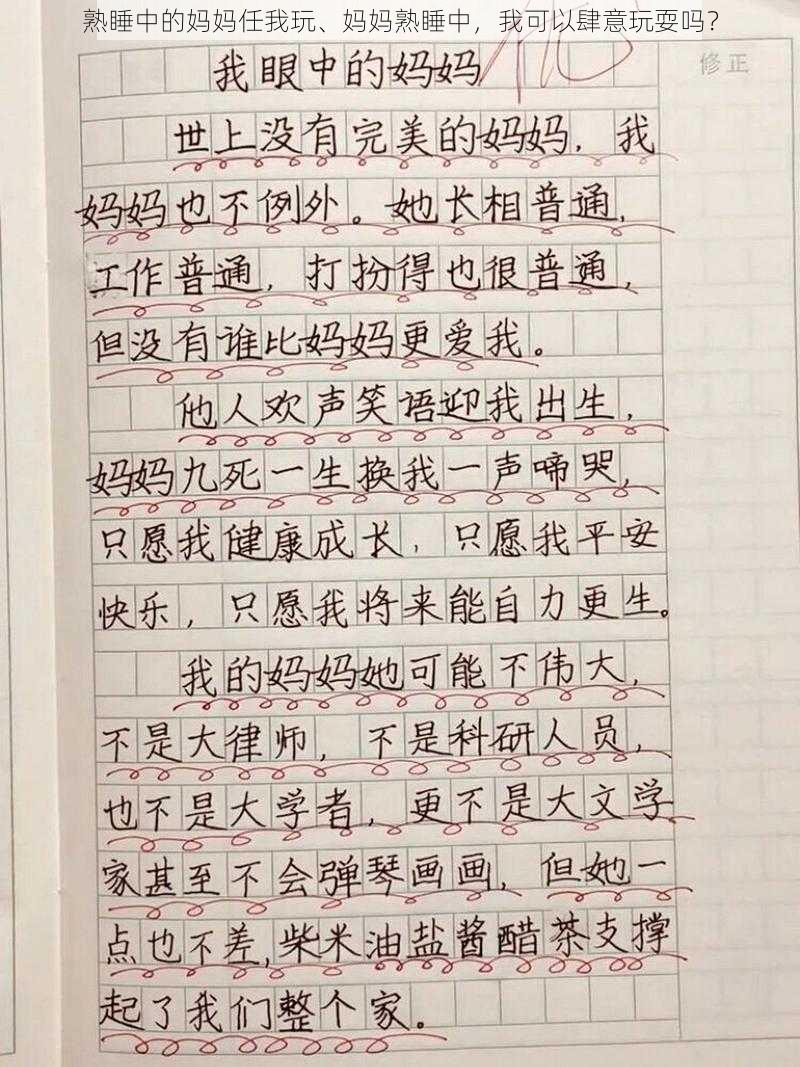 熟睡中的妈妈任我玩、妈妈熟睡中，我可以肆意玩耍吗？
我眼中的妈妈
修正
世上没有完美的妈妈，我
妈妈也不例外。她长相普通，
工作普通，打扮得也很普通，
但没有谁比妈妈更爱我。
他人欢声笑语迎我出生，
妈妈九死一生换我一声啼哭，
只愿我健康成长，只愿我平安
快乐，只愿我将来能自力更生。
我的妈妈她可能不伟大，
不是大律师，不是科研人员，
也不是大学者，更不是大文学
家甚至不会弹琴画画，但她一
点也不差，柴米油盐酱醋茶支撑
起了我们整个家。